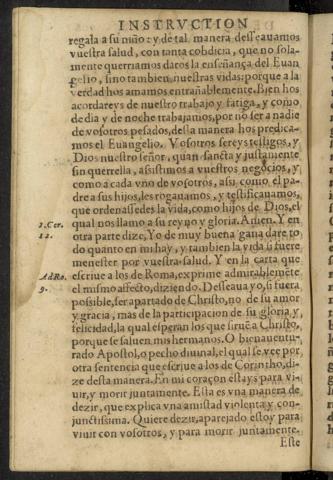 INSTRVCTION
regala a su niño: y de tal manera desseauamos
vuestra salud, con tanta cobdicia, que no sola-
mente querriamos daros la enseñança del Euan
gelio, sino tambien nuestras vidas: porque a la
verdad hos amamos entrañablemente. Bien hos
acordareys de nuestro trabajo y fatiga, y como
de dia y de noche trabajamos, por no ser a nadie
de vosotros pesados, desta manera hos predica-
mos el Euangelio. Vosotros sereys testigos, y
Dios nuestro señor, quan sancta y justamente
sin querrella, asistimos a vuestros negocios, y
como a cada vno de vosotros, asi como el pa-
dre a sus hijos, les rogauamos, y testificauamos,
que ordenassedes la vida, como hijos de Dios, el
qual nos llamo a su reyno y gloria. Amen. Y en
1.Cor.
otra parte dize, Yo de muy buena gana dare to
12.
do quanto en mi hay, y tambien la vida si fuere
menester por vuestra salud. Y en la carta que
Ad Ro.
escriue a los de Roma, exprime admirablemẽte
9.
el mismo affecto, diziendo. Desseaua yo, si fuera
possible, ser apartado de Christo, no de su amor
y gracia, mas de la participacion de su gloria, y
felicidad, la qual esperan los que siruẽ a Christo,
porque se saluen mis hermanos. O bienauentu-
rado Apostol, o pecho diuinal, el qual se vee por
otra sentencia que escriue a los de Corintho, di-
ze desta manera. En mi coraçon estays para vi-
uir, y morir juntamente. Esta es vna manera de
dezir, que explica vna amistad violenta y con-
junctissima. Quiere dezir, aparejado estoy para
viuir con vosotros, y para morir juntamente.
Este